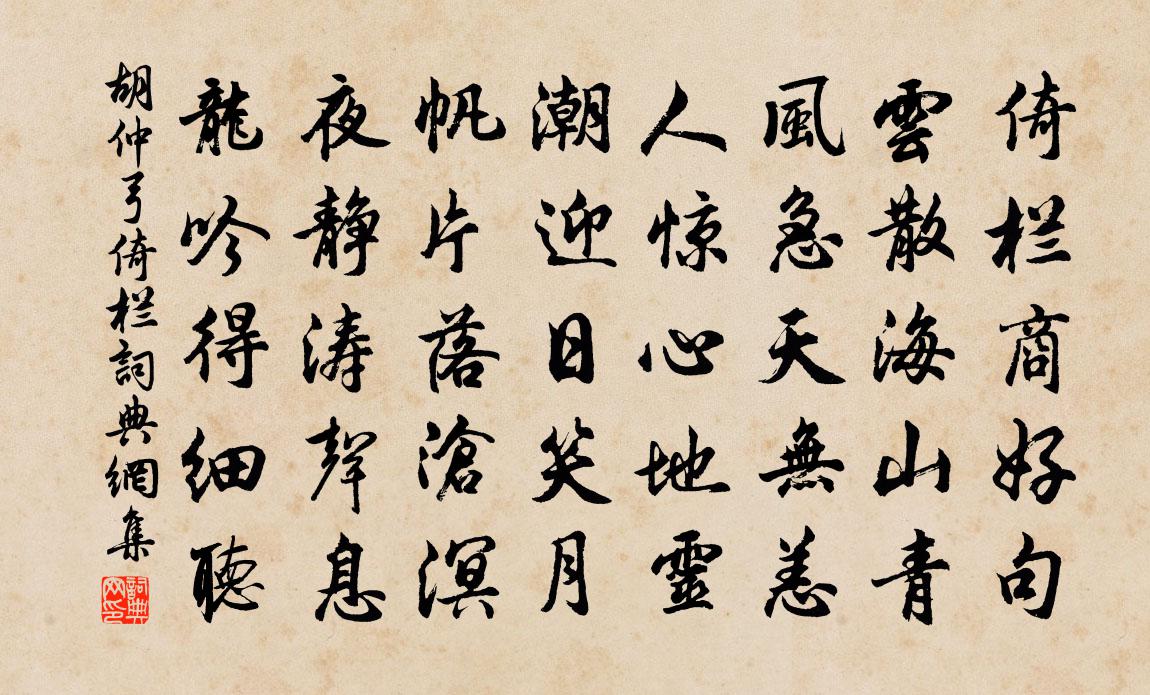 倚栏商好句
雲散海山青
風急天無恙
人惊心地靈
潮迎日笑月
帆片落滄溟
夜靜涛聲息
龍吟得細聽
胡仲弓倚栏詞典網集
詞典网印